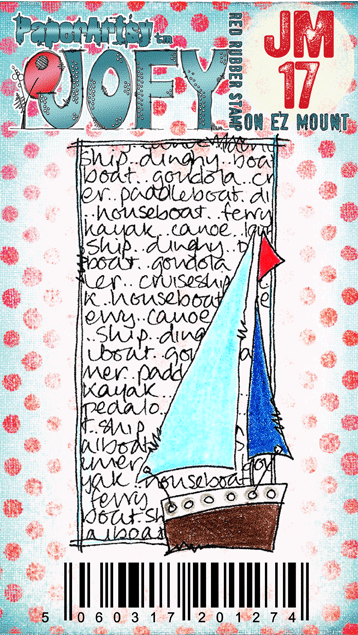 PaperArtsy tm
JOFY
RED RUBBER STAMPS
ON EZ MOUNT
JM
17
ship..dinghy..boa
boat..gondola..cr
er..paddleboat..di
..houseboat..ferry
kayak..canoe..
ship..dinghy..
boat..gondola
er..cruiseship
k..houseboat
erry..canoe
..ship..ding
boat..go
mer..padd
kayak..
pedalo..
t..ship..
ailboat
umer
yak..houseboat
ferry
boat..sh
ailboat
5 060317 201274